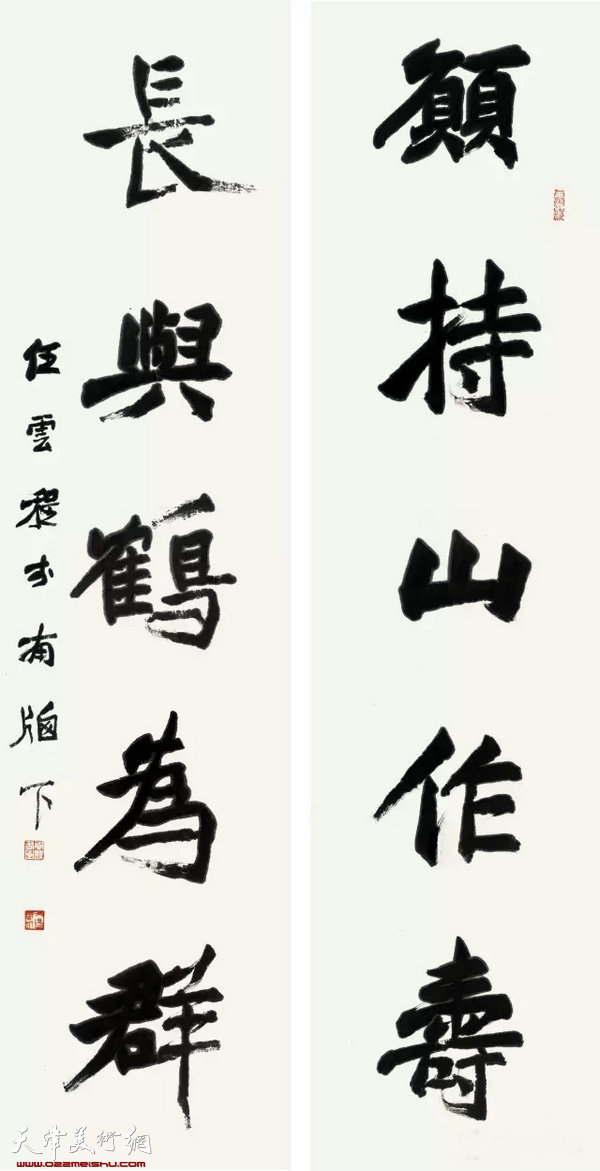 願持山作壽
長與鶴為群
任雲程于南牖下
天津美術網
www.022meishu.com